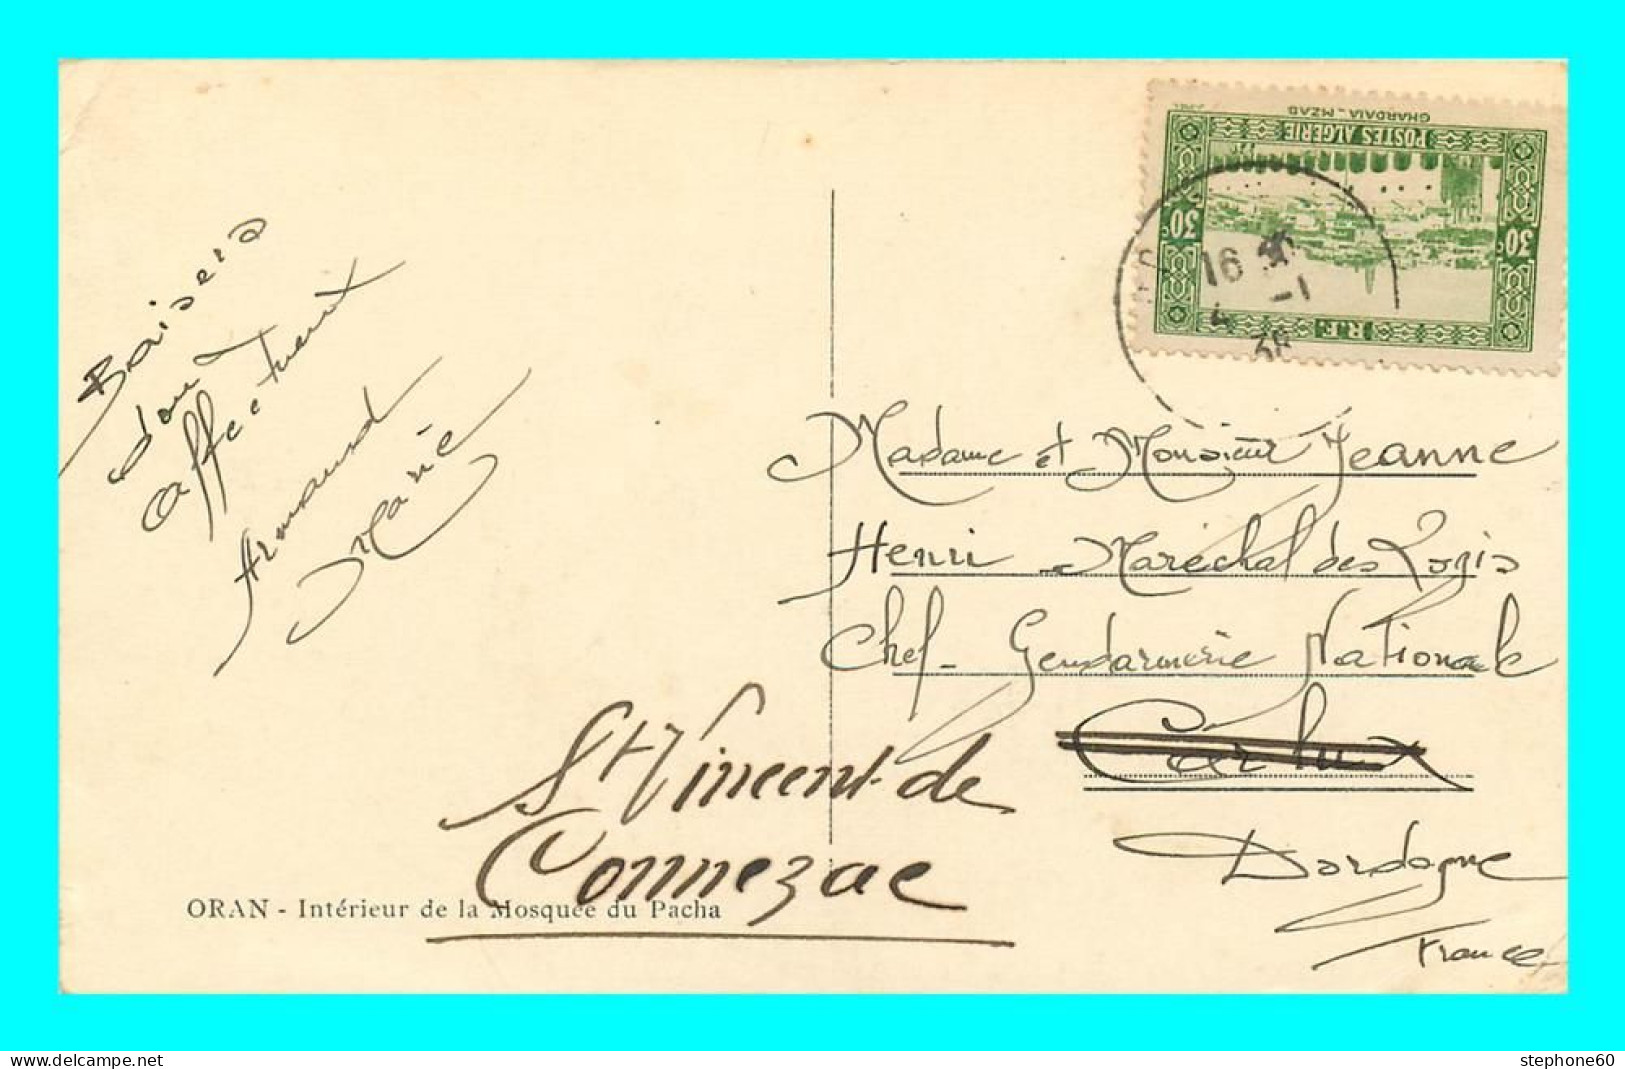 Baisers
doux
affectueux
Armand
Marie
ORAN - Intérieur de la Mosquée du Pacha
POSTES ALGERIE
GHARDAIA - MZAB
30c
30c
R.F.
16
4 -1
38
Madame et Monsieur Jeanne
Henri Maréchal des Logis
Chef - Gendarmerie Nationale
Carlux
St Vincent-de
Connezac
Dordogne
France
stephone60